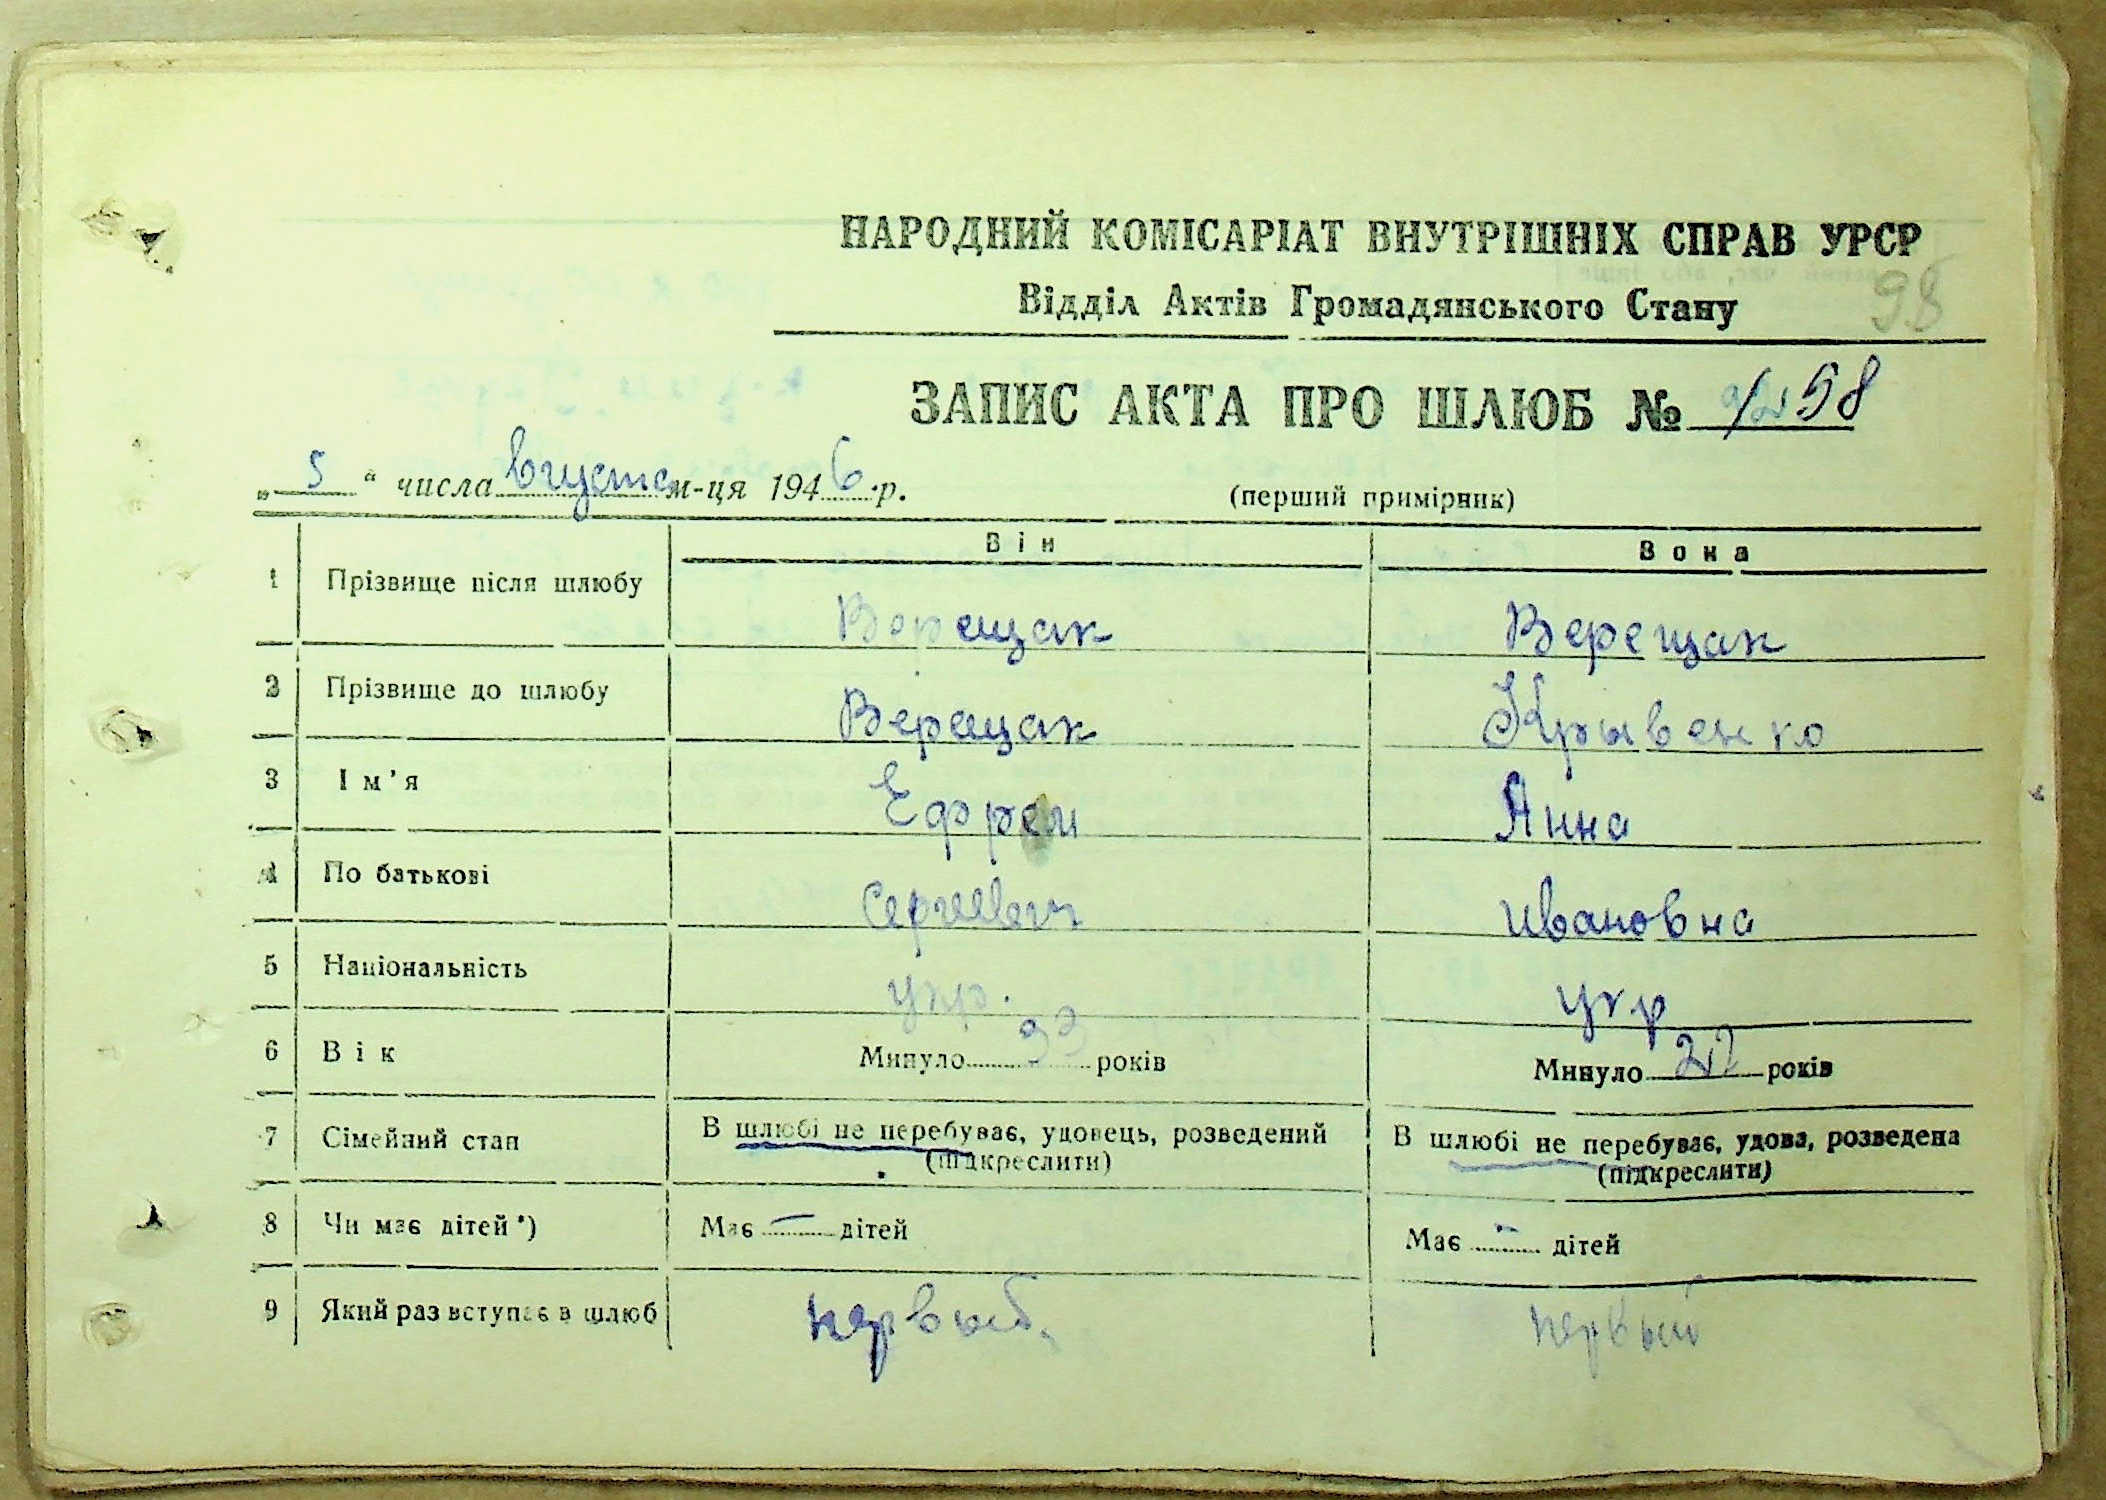 НАРОДНИЙ КОМІСАРІАТ ВНУТРІШНІХ СПРАВ УРСР
Відділ Актів Громадянського Стану
98
ЗАПИС АКТА ПРО ШЛЮБ № 98
„ 5 “ числа вгуста м-ця 1946 р.
(перший примірник)
Він Вона
1 Прізвище після шлюбу Верещак Верещак
2 Прізвище до шлюбу Верещак Крывенко
3 Ім’я Ефрем Анна
4 По батькові Сергеевич Ивановна
5 Національність укр. укр
6 Вік Минуло 33 років Минуло 22 років
7 Сімейний стан В шлюбі не перебуває, удовець, розведений В шлюбі не перебуває, удова, розведена
(підкреслити) (підкреслити)
8 Чи має дітей*) Має — дітей Має - дітей
9 Який раз вступає в шлюб первый первый